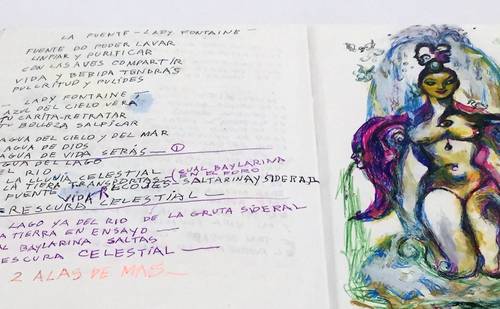 LA FUENTE - LADY FONTAINE -
FUENTE DO PODER LAVAR
LIMPIAR Y PURIFICAR
CON LAS AVES COMPARTIR
VIDA Y BEBIDA TENDRÁS
PULCRITUD Y PULIDES
- LADY FONTAINE -
AZUL DEL CIELO VERÁ
TU CARITA - RETRATAR
- BELLEZA SALPICAR
AGUA DEL CIELO Y DEL MAR
AGUA DE DIOS
AGUA DE VIDA SERÁS - 1
AGUA DEL LAGO
EL RIO
LA LLUVIA CELESTIAL / CUAL BAYLARINA
EN EL FORO
LA TIERRA SALTARINA Y SIDERAL
FUENTE VIDA RECOJES
FRESCURA CELESTIAL
LAGO YA DEL RIO DE LA GRUTA SIDERAL
A TIERRA EN ENSAYO -
AL BAYLARINA SALTAS
ESCURA CELESTIAL -
2 ALAS DE MAS -